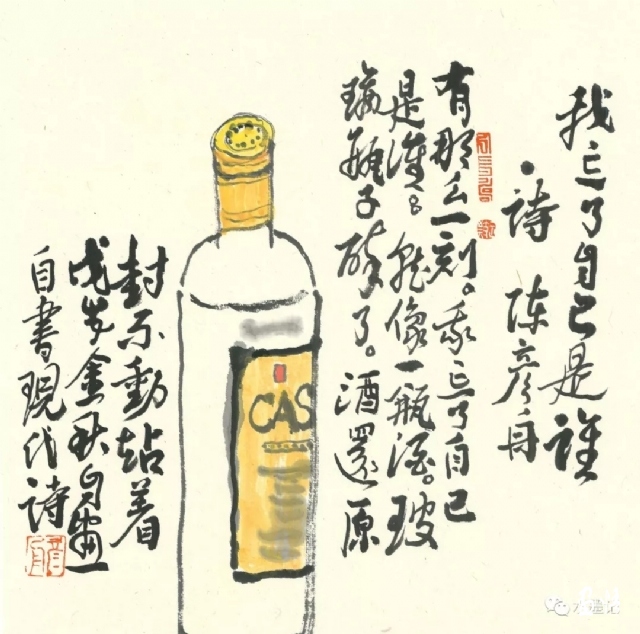 我忘了自己是誰
·詩 陈彦舟
有那么一刻。我忘了自己
是誰。就像一瓶酒。玻
璃瓶子醉了。酒還原
封不動站着
戊戌金秋自畫
自書現代詩
CAS